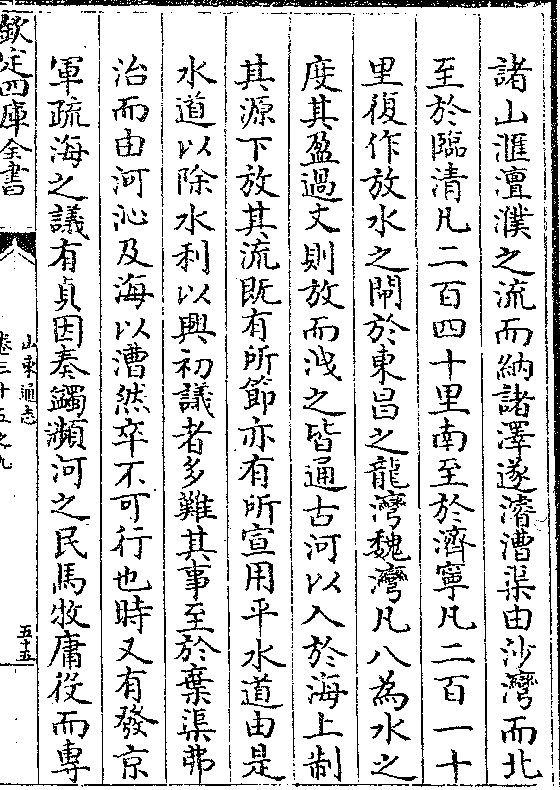 諸山滙澶濮之流而納諸澤遂濬漕渠由沙灣而北
至於臨清凡二百四十里南至於濟寧凡二百一十
里復作放水之閘於東昌之龍灣魏灣凡八為水之
度其盈過丈則放而洩之皆通古河以入於海上制
其源下放其流既有所節亦有所宣用平水道由是
水道以除水利以興初議者多難其事至於棄渠弗
治而由河沁及海以漕然卒不可行也時又有發京
軍疏海之議有貞因奏蠲瀕河之民馬牧庸役而專
欽定四庫全書
山東通志
卷三十五之九
五十五